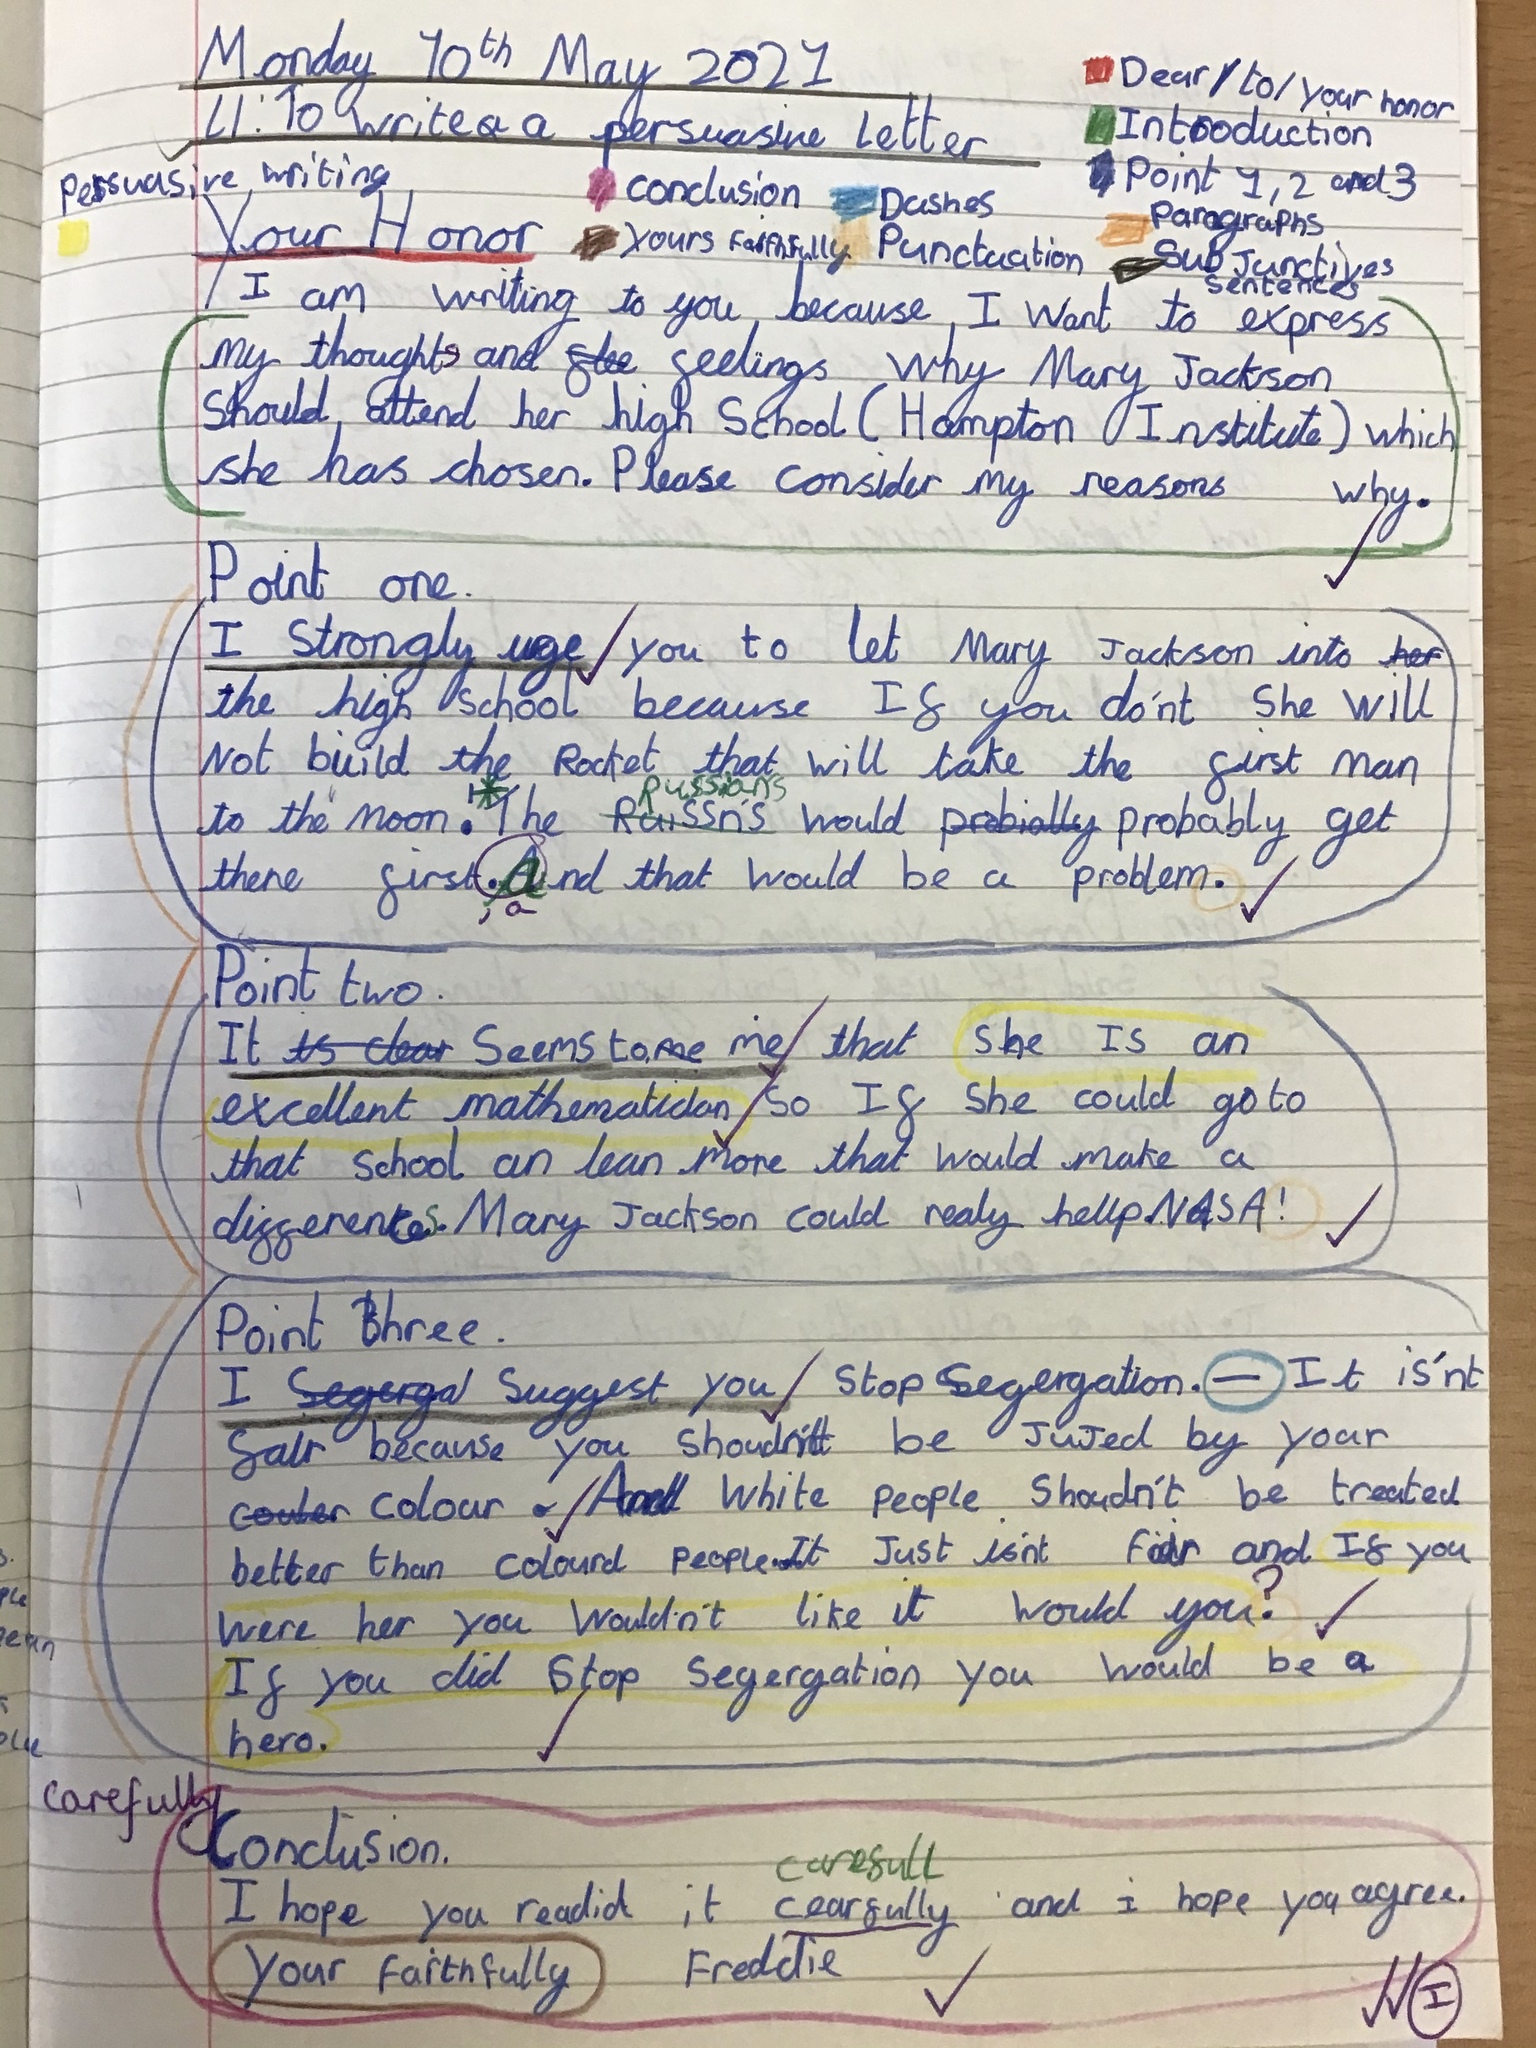 Monday 10th May 2021
LI: To write a a persuasive letter
Dear/to/your honor
Introduction
Point 1, 2 and 3
Paragraphs
Subjunctives
sentences
persuasive writing
conclusion
Dashes
Yours faithfully
Punctuation
Your Honor
I am writing to you, because, I want to express
my thoughts and feelings why Mary Jackson
should, attend her high School (Hampton Institute) which
she has chosen. Please consider my reasons why.
Point one.
I Strongly uge you to let Mary Jackson into her
the high school because If you do'nt She will
Not build the Rocket that will take the first man
Russians
to the Moon. * The Raissn's would probially probably get
there first. And that would be a problem.
, a
Point two.
It is clear Seems to me me that She Is an
excellent mathematician So If She could go to
that school an lean more that would make a
differences. Mary Jackson could realy hellp NASA!
Point three.
I Segerga Suggest you Stop Segergation. – It is'nt
fair because you shoudn't be JuJed by your
couler colour. And White people Shoudn't be treated
better than colourd people. It Just isn't fair and If you
were her you Wouldn't like it would you?
If you did Stop Segergation you would be a
hero.
carefully
Conclusion.
carefull
I hope you readid it cearfully and i hope you agree.
Your faithfully Freddie
I